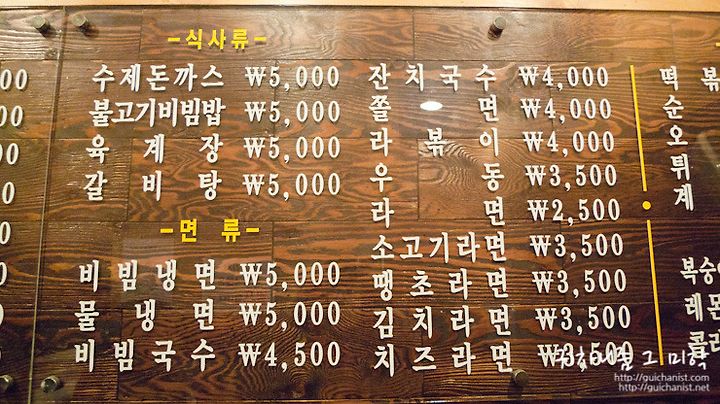 -식사류-
수제돈까스 ₩5,000
불고기비빔밥 ₩5,000
육계장 ₩5,000
갈비탕 ₩5,000
-면류-
비빔냉면 ₩5,000
물냉면 ₩5,000
비빔국수 ₩4,500
잔치국수 ₩4,000
쫄면 ₩4,000
라볶이 ₩4,000
우동 ₩3,500
라면 ₩2,500
소고기라면 ₩3,500
땡초라면 ₩3,500
김치라면 ₩3,500
치즈라면 ₩3,500
떡볶
순
오
튀
계
복숭아
레몬
콜라
그 미학
http://guichanist.com
http://guichanist.net